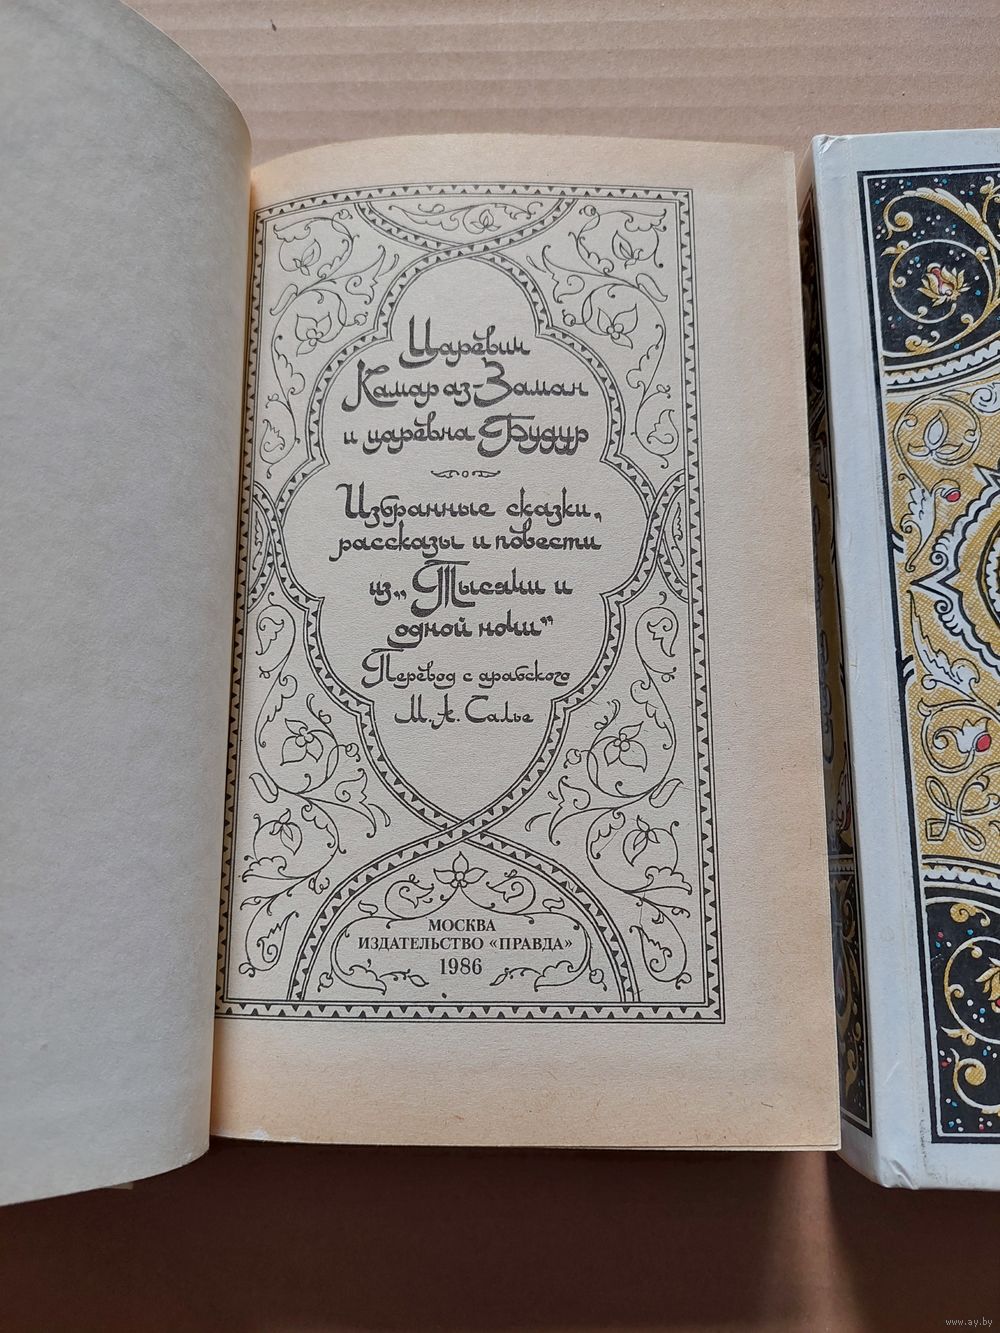 Царевич
Камар аз-Заман
и царевна Будур
Избранные сказки,
рассказы и повести
из „Тысячи и
одной ночи“
Перевод с арабского
М. А. Салье
МОСКВА
ИЗДАТЕЛЬСТВО «ПРАВДА»
1986
www.ay.by